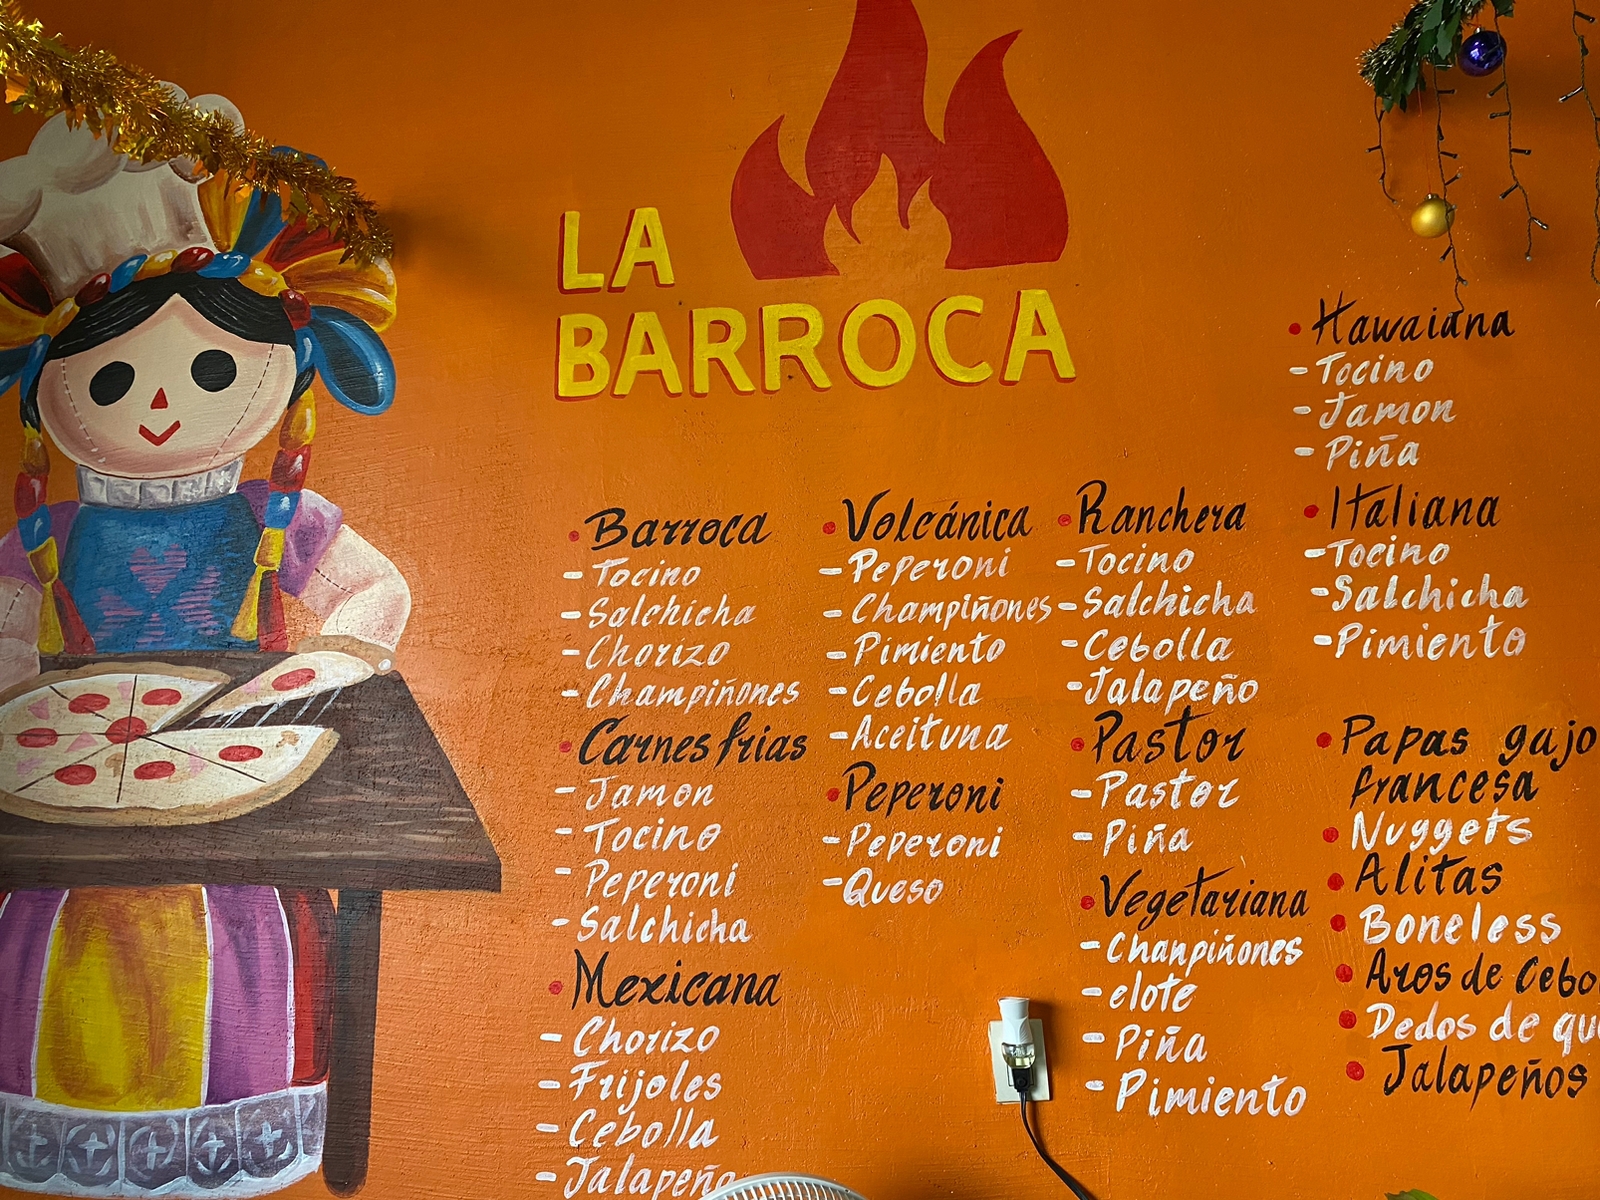 LA
BARROCA
Barroca
-Tocino
-Salchicha
-Chorizo
-Champiñones
Carnes frias
-Jamon
-Tocino
-Peperoni
-Salchicha
Mexicana
-Chorizo
-Frijoles
-Cebolla
-Jalapeño
Volcánica
-Peperoni
-Champiñones
-Pimiento
-Cebolla
-Aceituna
Peperoni
-Peperoni
-Queso
Ranchera
-Tocino
-Salchicha
-Cebolla
-Jalapeño
Pastor
-Pastor
-Piña
Vegetariana
-Chanpiñones
-elote
-Piña
-Pimiento
Hawaiana
-Tocino
-Jamon
-Piña
Italiana
-Tocino
-Salchicha
-Pimiento
Papas gajo
francesa
Nuggets
Alitas
Boneless
Aros de
Dedos de
Jalapeños